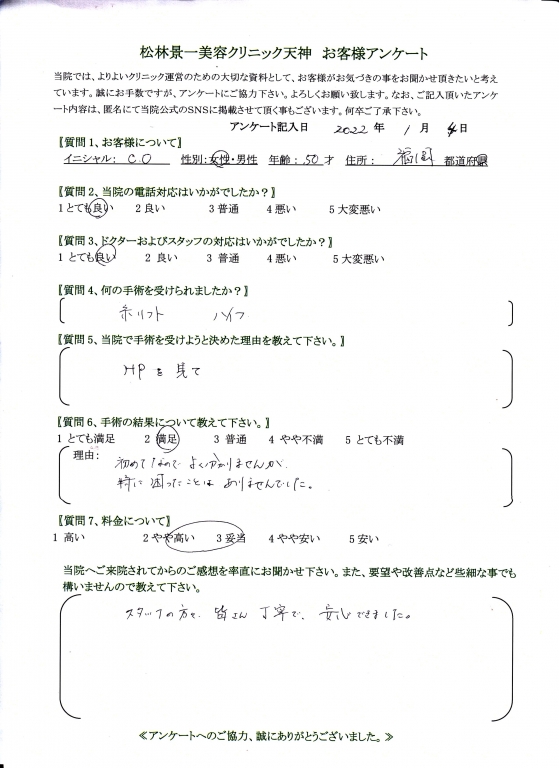 松林景一美容クリニック天神 お客様アンケート
当院では、よりよいクリニック運営のための大切な資料として、お客様がお気づきの事をお聞かせ頂きたいと考え
ています。誠にお手数ですが、アンケートにご協力下さい。よろしくお願い致します。なお、ご記入頂いたアンケ
ート内容は、匿名にて当院公式のSNSに掲載させて頂く事もございます。何卒ご了承下さい。
アンケート記入日 2022 年 1 月 4 日
〖質問1、お客様について〗
イニシャル: C.O 性別:女性・男性 年齢:50才 住所: 福岡 都道府県
〖質問2、当院の電話対応はいかがでしたか?〗
1 とても良い 2 良い 3 普通 4 悪い 5 大変悪い
〖質問3、ドクターおよびスタッフの対応はいかがでしたか?〗
1 とても良い 2 良い 3 普通 4 悪い 5 大変悪い
〖質問4、何の手術を受けられましたか?〗
糸リフト ハイフ
〖質問5、当院で手術を受けようと決めた理由を教えて下さい。〗
HPを見て
〖質問6、手術の結果について教えて下さい。〗
1 とても満足 2 満足 3 普通 4 やや不満 5 とても不満
理由: 初めてなので よく分かりませんが
特に困ったことは ありませんでした。
〖質問7、料金について〗
1 高い 2 やや高い 3 妥当 4 やや安い 5 安い
当院へご来院されてからのご感想を率直にお聞かせ下さい。また、要望や改善点など些細な事でも
構いませんので教えて下さい。
スタッフの方も 皆さん 丁寧で、安心できました。
≪アンケートへのご協力、誠にありがとうございました。≫